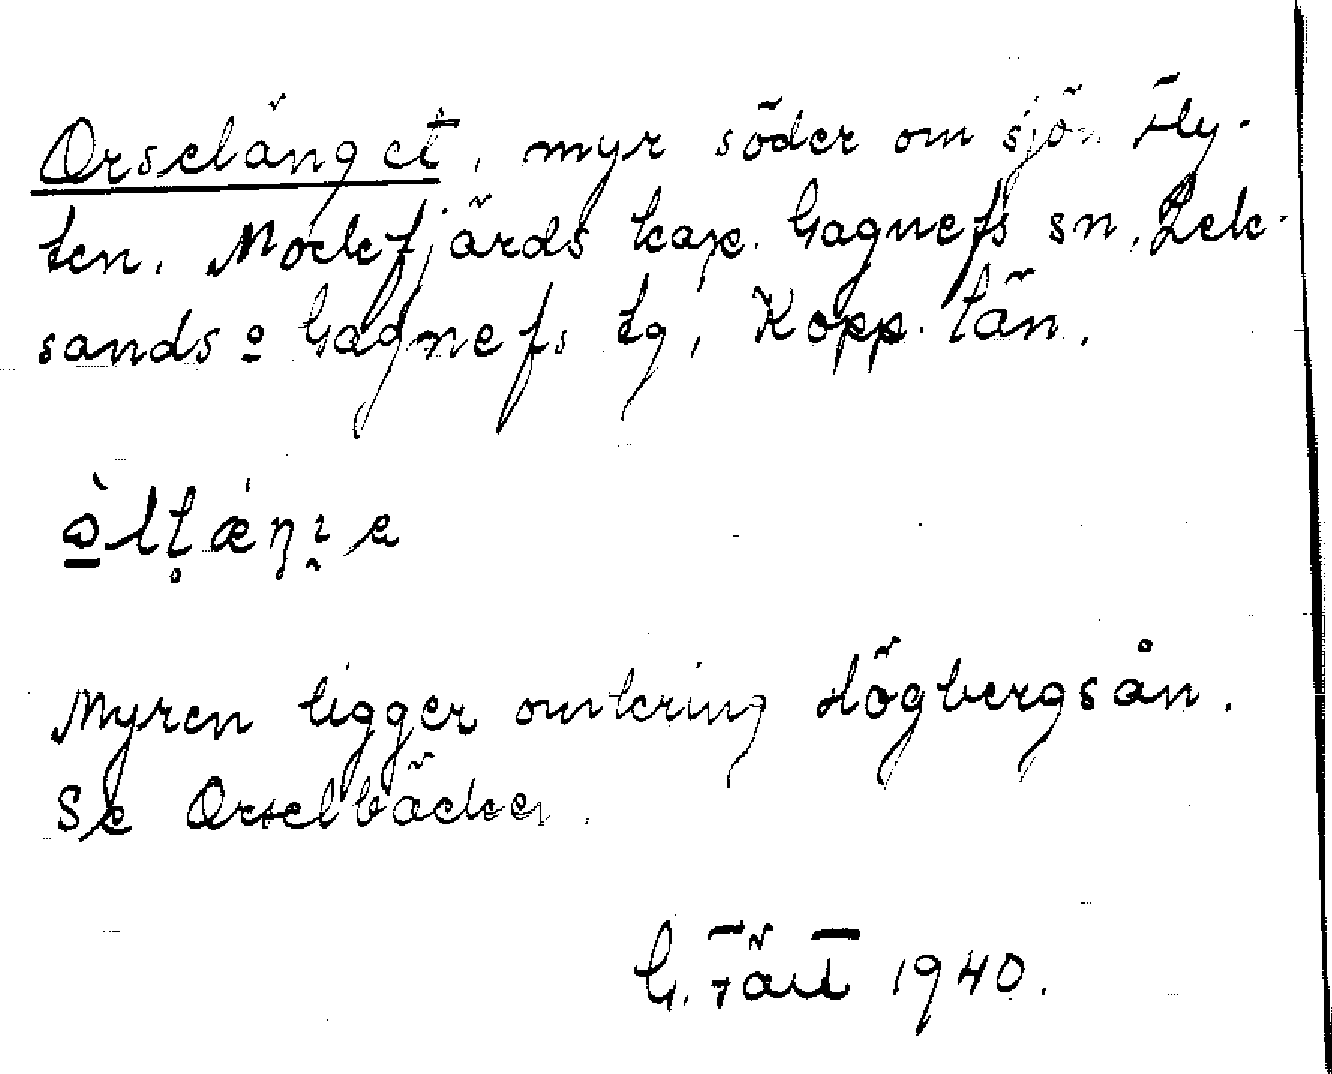 Orselänget, myr söder om sjön Fly-
ten. Mockfjärds kap. Gagnefs sn, Lek-
sands o Gagnefs tg, Kopp. län.
Myren ligger omkring Högbergsån.
Se Orselbäcken.
G. Täll 1940.